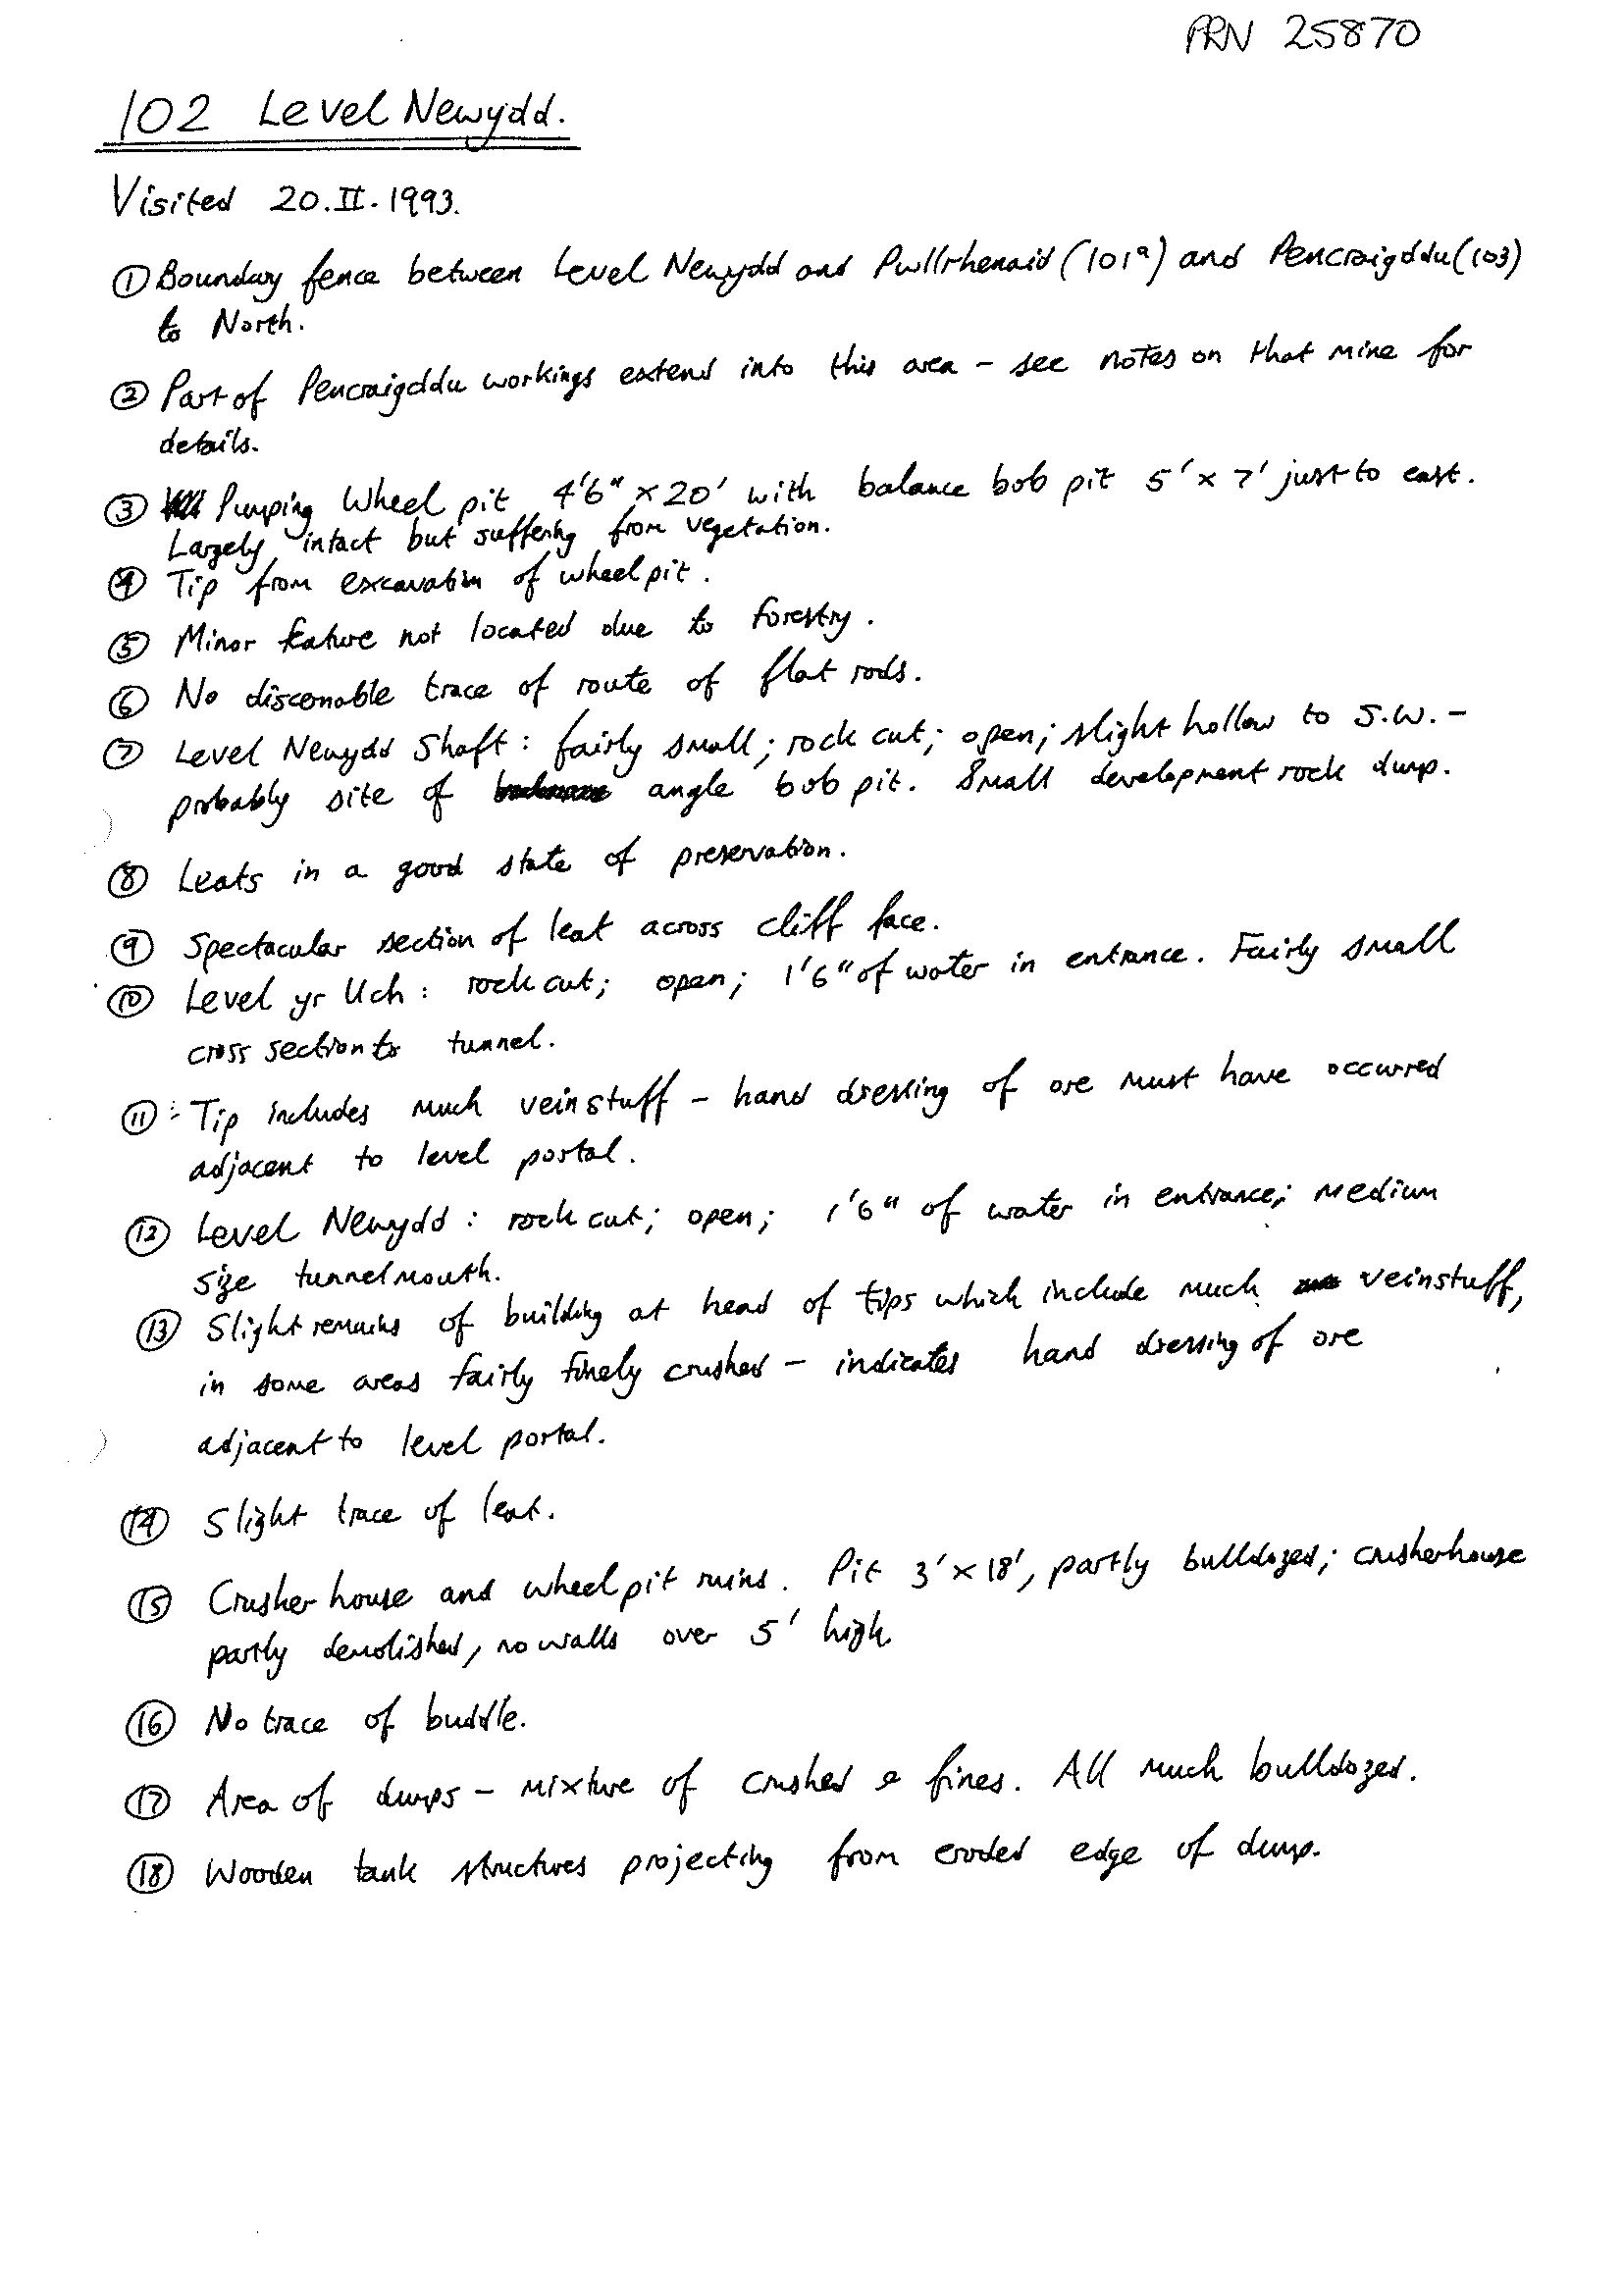 PRN 25870
102 Level Newydd.
Visited 20.II.1993.
① Boundary fence between Level Newydd and Pwllrhenaid (101ª) and Pencraigddu (103)
to North.
② Part of Pencraigddu workings extend into this area – see notes on that mine for
details.
③ Pumping Wheel pit 4'6" x 20' with balance bob pit 5' x 7' just to east.
Largely intact but suffering from vegetation.
④ Tip from excavation of wheelpit.
⑤ Minor feature not located due to forestry.
⑥ No discernable trace of route of flat rods.
⑦ Level Newydd Shaft: fairly small; rock cut; open; slight hollow to S.W. –
probably site of angle bob pit. Small development rock dump.
⑧ Leats in a good state of preservation.
⑨ Spectacular section of leat across cliff face.
⑩ Level yr Uch: rock cut; open; 1'6" of water in entrance. Fairly small
cross section to tunnel.
⑪ Tip includes much veinstuff – hand dressing of ore must have occurred
adjacent to level portal.
⑫ Level Newydd: rock cut; open; 1'6" of water in entrance; medium
size tunnelmouth.
⑬ Slight remains of building at head of tips which include much veinstuff,
in some areas fairly finely crushed – indicates hand dressing of ore
adjacent to level portal.
⑭ Slight trace of leat.
⑮ Crusher house and wheelpit ruins. Pit 3' x 18', partly bulldozed; crusherhouse
partly demolished, no walls over 5' high.
⑯ No trace of buddle.
⑰ Area of dumps – mixture of crushed & fines. All much bulldozed.
⑱ Wooden tank structures projecting from eroded edge of dump.